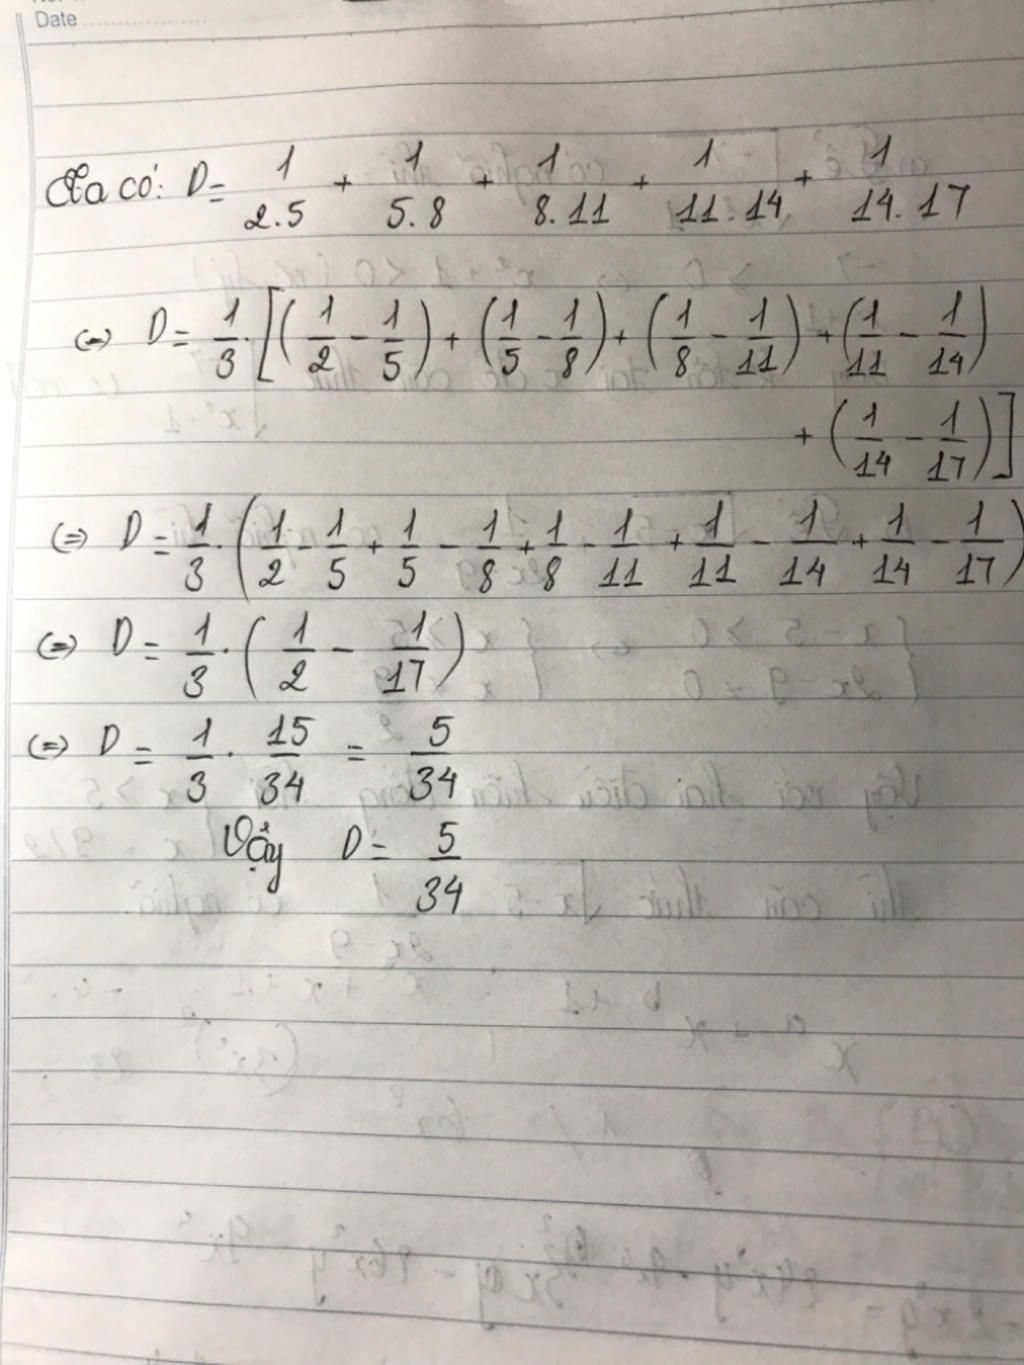 Date
Ta có: D = 1/2.5 + 1/5.8 + 1/8.11 + 1/11.14 + 1/14.17
(=) D = 1/3 . [(1/2 - 1/5) + (1/5 - 1/8) + (1/8 - 1/11) + (1/11 - 1/14)
+ (1/14 - 1/17)]
(=) D = 1/3 . (1/2 - 1/5 + 1/5 - 1/8 + 1/8 - 1/11 + 1/11 - 1/14 + 1/14 - 1/17)
(=) D = 1/3 . (1/2 - 1/17)
(=) D = 1/3 . 15/34 = 5/34
Vậy D = 5/34